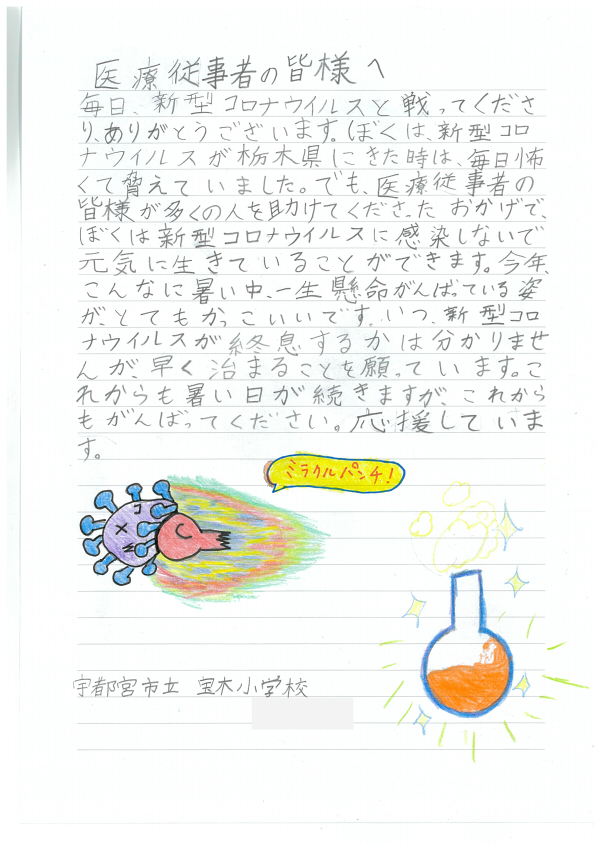 医療従事者の皆様へ
毎日、新型コロナウイルスと戦ってくださ
り、ありがとうございます。ぼくは、新型コロ
ナウイルスが栃木県にきた時は、毎日怖
くて脅えていました。でも、医療従事者の
皆様が多くの人を助けてくださったおかげで、
ぼくは新型コロナウイルスに感染しないで
元気に生きていることができます。今年、
こんなに暑い中、一生懸命がんばっている姿
が、とてもかっこいいです。いつ、新型コロ
ナウイルスが終息するかは分かりませ
んが、早く治まることを願っています。こ
れからも暑い日が続きますが、これから
もがんばってください。応援していま
す。
ミラクルパンチ!
宇都宮市立 宝木小学校